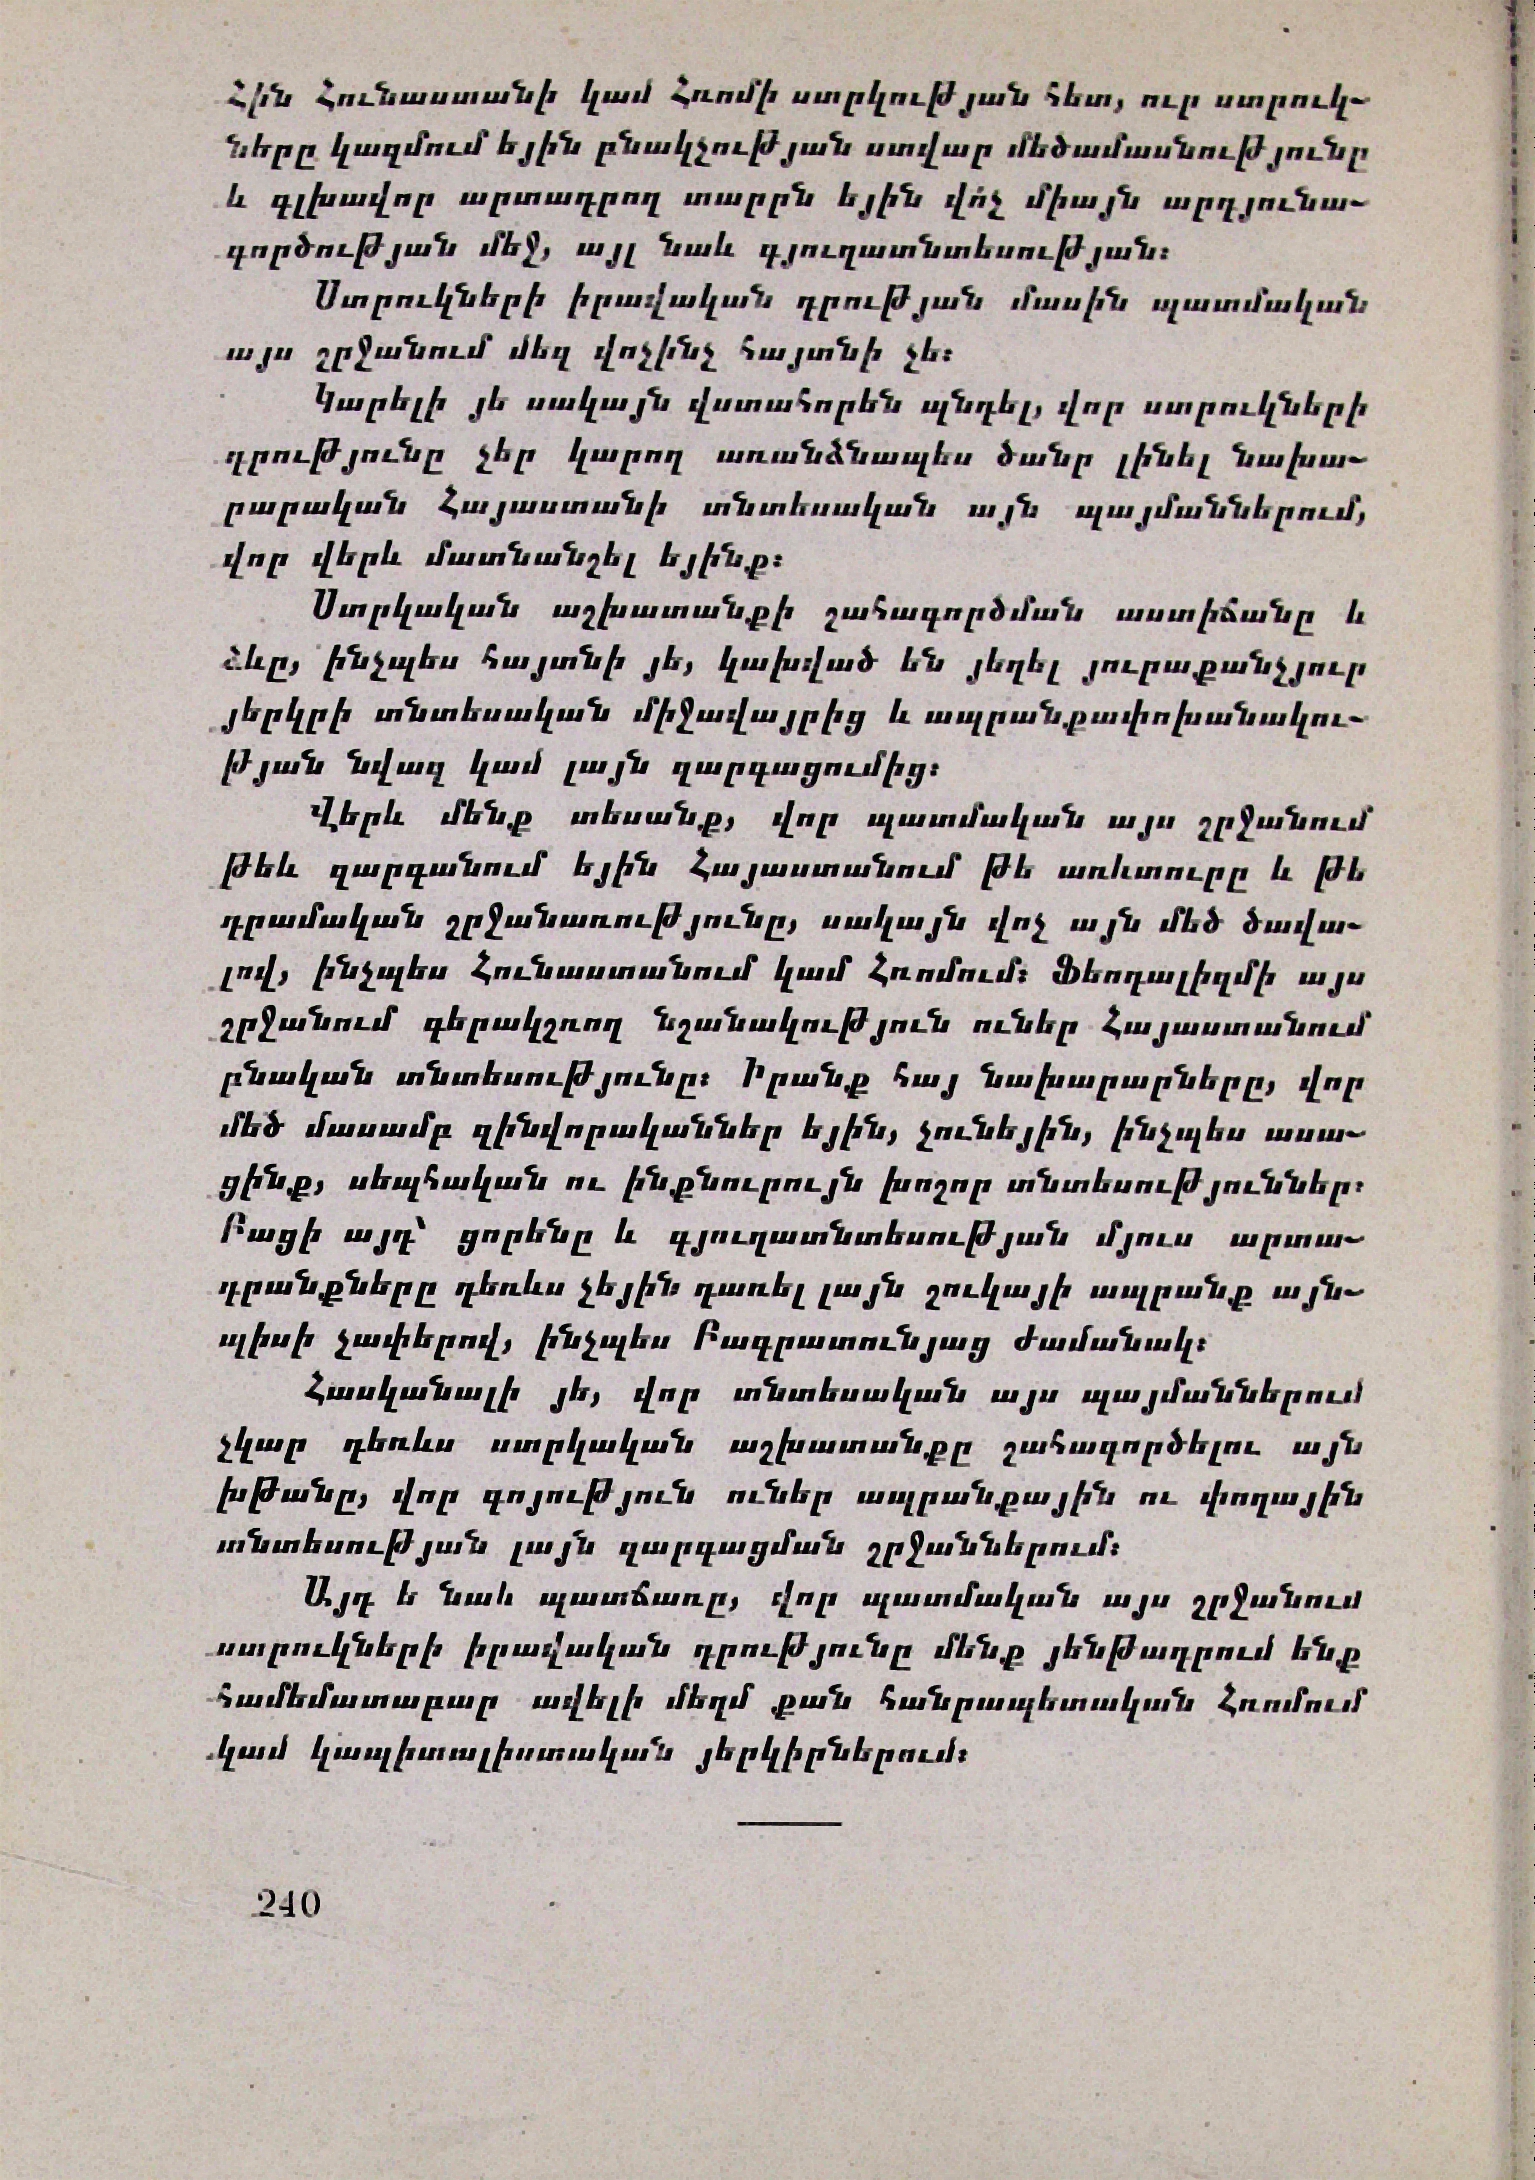 Հին Հունաստանի կամ Հռոմի ստրկության հետ, ուր ստրուկ-
ները կազմում եյին բնակչության ստվար մեծամասնությունը
և գլխավոր արտադրող տարրն եյին վո՛չ միայն արդյունա-
գործության մեջ, այլ նաև գյուղատնտեսության։
Ստրուկների իրավական դրության մասին պատմական
այս շրջանում մեզ վոչինչ հայտնի չե։
Կարելի յե սակայն վստահորեն պնդել, վոր ստրուկների
դրությունը չեր կարող առանձնապես ծանր լինել նախա-
րարական Հայաստանի տնտեսական այն պայմաններում,
վոր վերև մատնանշել եյինք։
Ստրկական աշխատանքի շահագործման աստիճանը և
ձևը, ինչպես հայտնի յե, կախված են յեղել յուրաքանչյուր
յերկրի տնտեսական միջավայրից և ապրանքափոխանակու-
թյան նվազ կամ լայն զարգացումից։
Վերև մենք տեսանք, վոր պատմական այս շրջանում
թեև զարգանում եյին Հայաստանում թե առևտուրը և թե
դրամական շրջանառությունը, սակայն վոչ այն մեծ ծավա-
լով, ինչպես Հունաստանում կամ Հռոմում։ Ֆեոդալիզմի այս
շրջանում գերակշռող նշանակություն ուներ Հայաստանում
բնական տնտեսությունը։ Իրանք հայ նախարարները, վոր
մեծ մասամբ զինվորականներ եյին, չունեյին, ինչպես ասա-
ցինք, սեպհական ու ինքնուրույն խոշոր տնտեսություններ։
Բացի այդ՝ ցորենը և գյուղատնտեսության մյուս արտա-
դրանքները դեռևս չեյին դառել լայն շուկայի ապրանք այն-
պիսի չափերով, ինչպես Բագրատունյաց ժամանակ։
Հասկանալի յե, վոր տնտեսական այս պայմաններում
չկար դեռևս ստրկական աշխատանքը շահագործելու այն
խթանը, վոր գոյություն ուներ ապրանքային ու փողային
տնտեսության լայն զարգացման շրջաններում։
Այդ ե նաև պատճառը, վոր պատմական այս շրջանում
ստրուկների իրավական դրությունը մենք յենթադրում ենք
համեմատաբար ավելի մեղմ քան հանրապետական Հռոմում
կամ կապիտալիստական յերկիրներում։
240